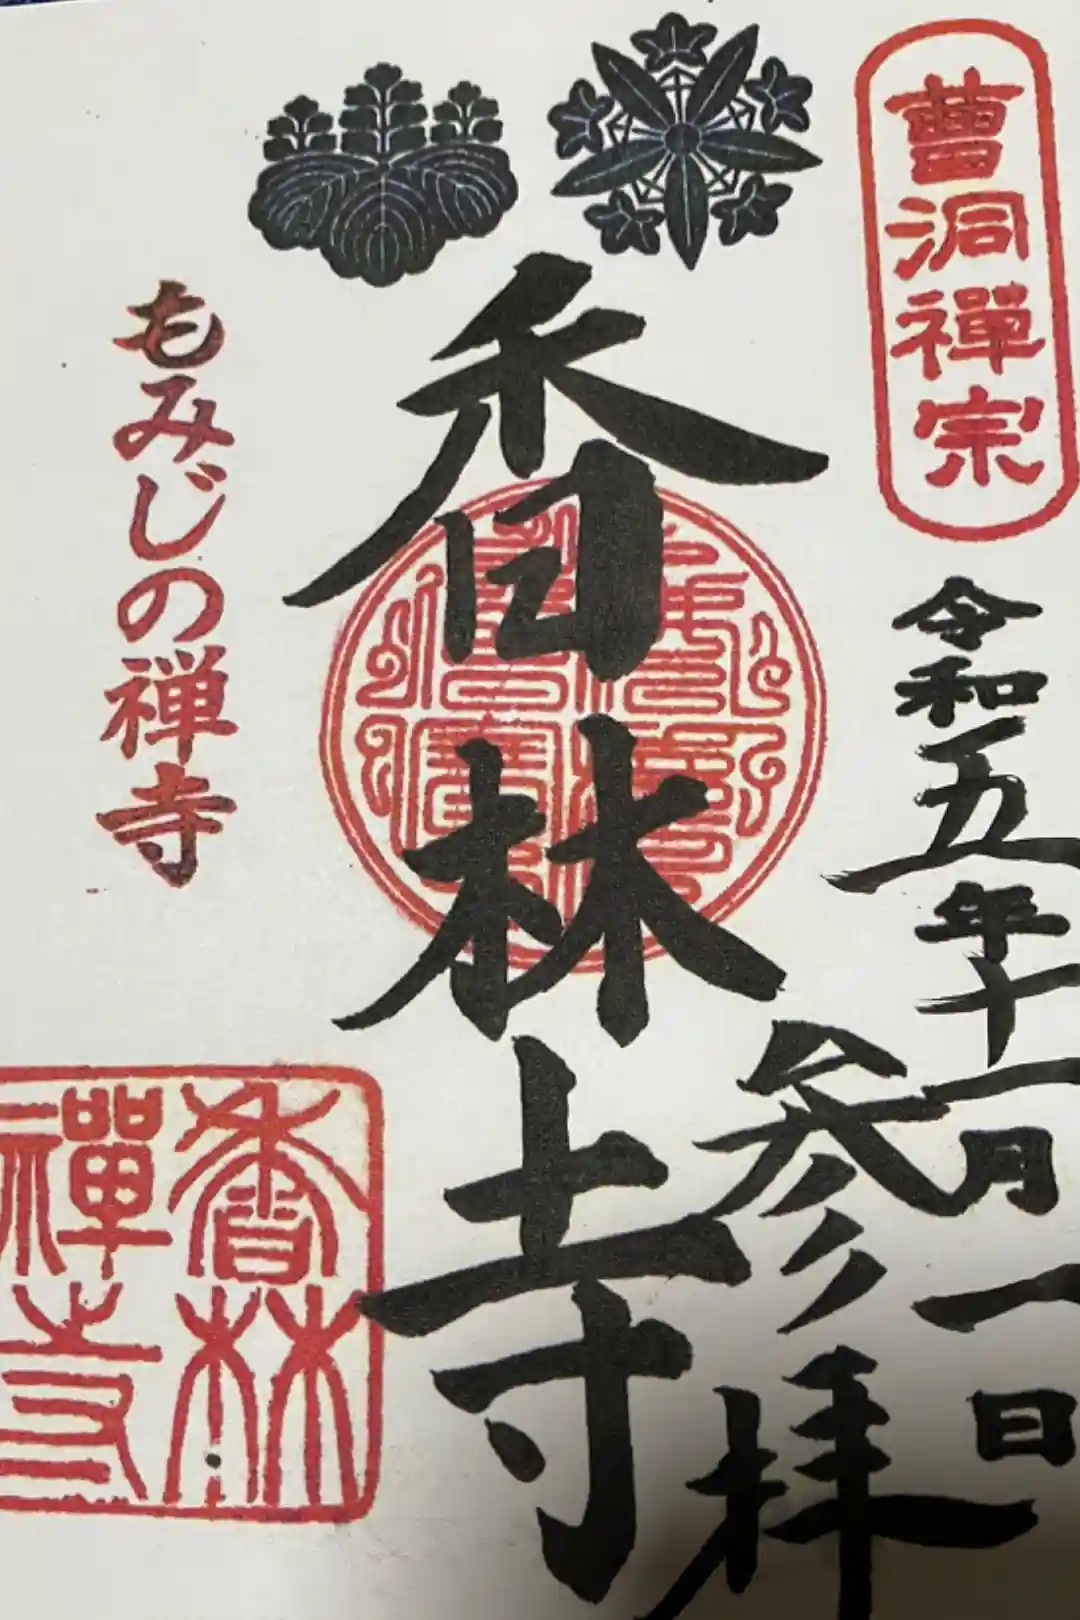 曹洞禪宗
令和五年十一月一日
参拝
香林寺
もみじの禅寺
香林
禪寺